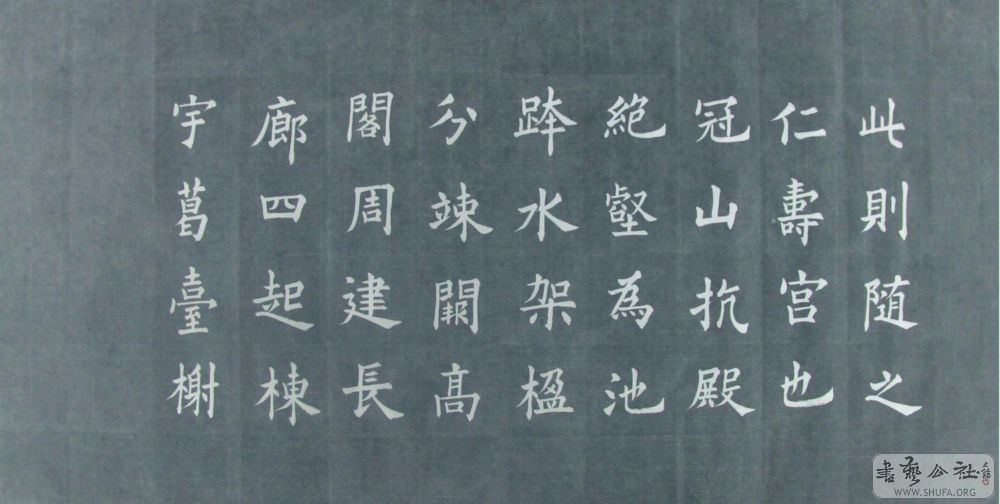 此則随之
仁壽宫也
冠山抗殿
絶壑為池
跨水架楹
分竦闕髙
閣周建長
廊四起棟
宇葛臺榭
書藝公社
WWW.SHUFA.ORG